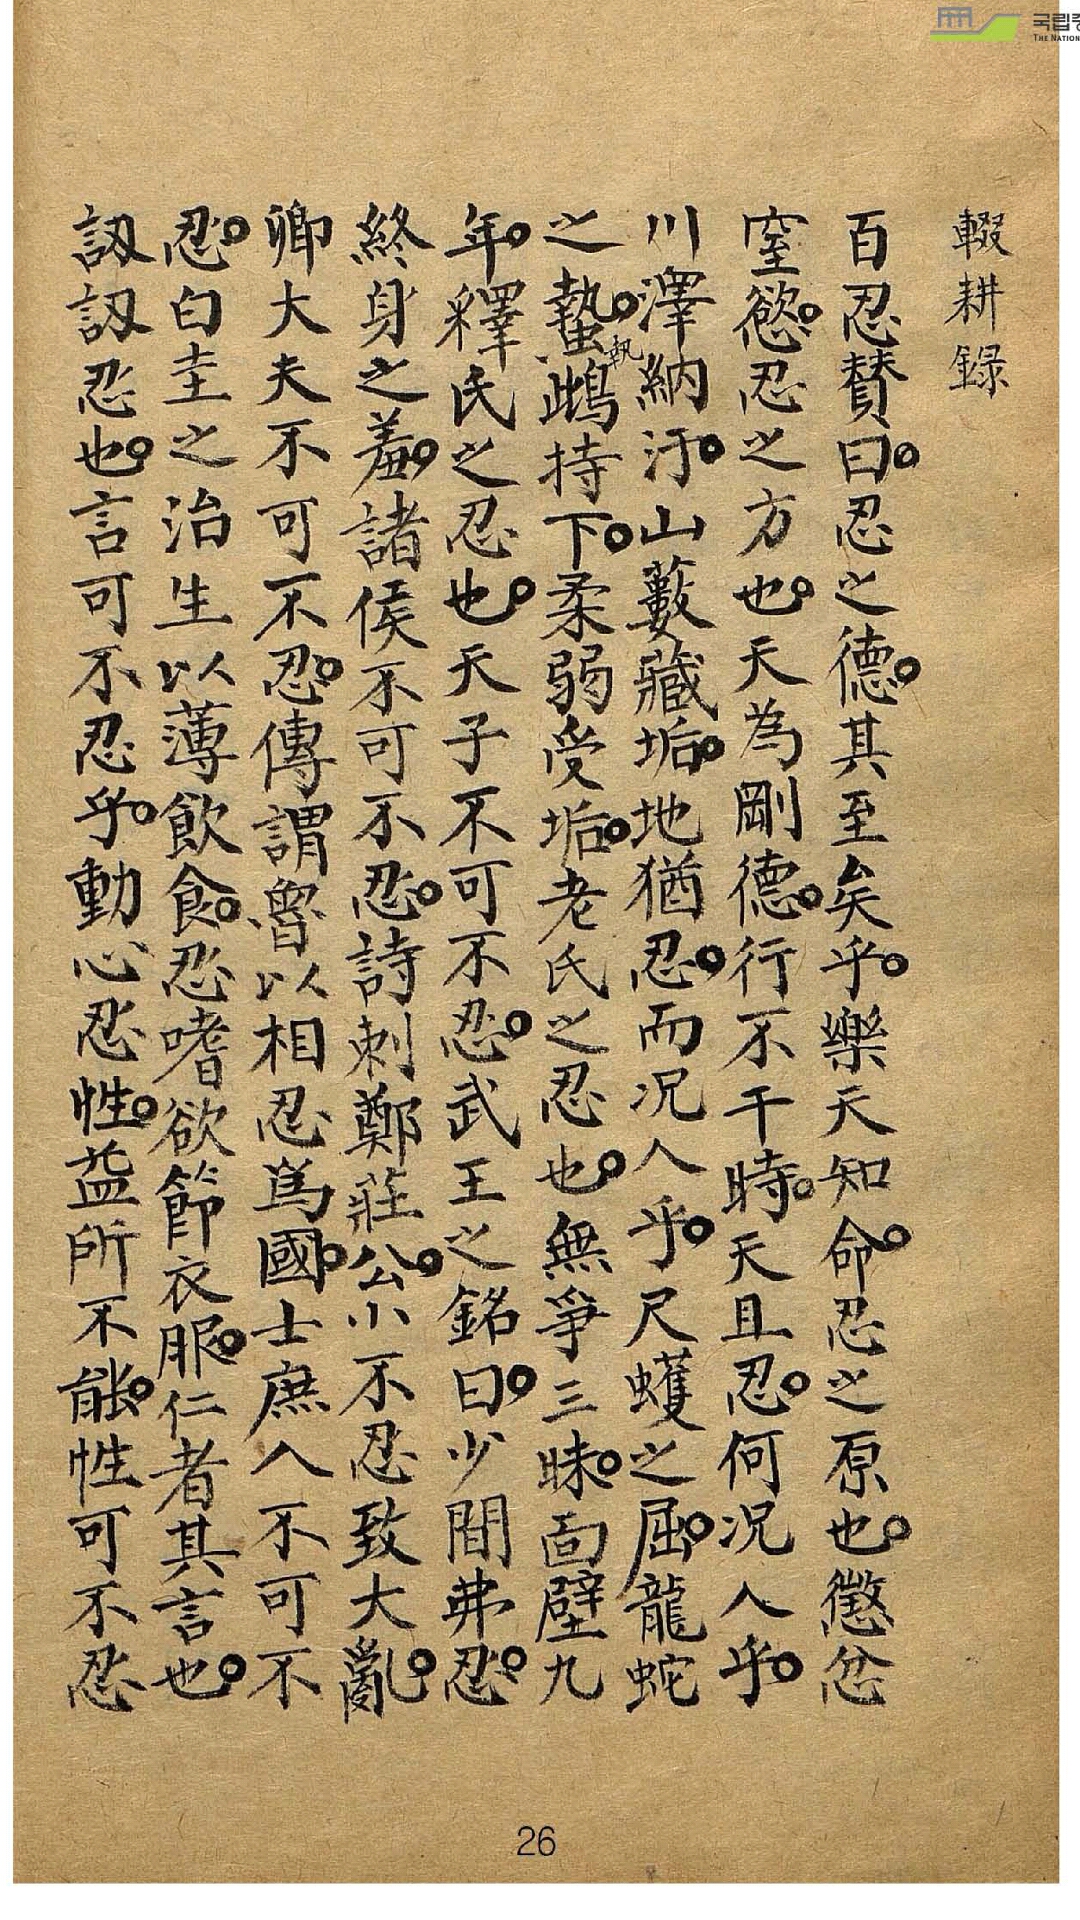 국립중
THE NATION
輟耕錄
百忍贊曰忍之德其至矣乎樂天知命忍之原也懲忿
窒慾忍之方也天為剛德行不干時天且忍何況人乎
川澤納汙山藪藏垢地猶忍而况人乎尺蠖之屈龍蛇
之蟄執雌持下柔弱受垢老氏之忍也無爭三昧面壁九
年釋氏之忍也天子不可不忍武王之銘曰少間弗忍
終身之羞諸侯不可不忍詩刺鄭莊公小不忍致大亂
卿大夫不可不忍傳謂魯以相忍爲國士庶人不可不
忍白圭之治生以薄飮食忍嗜欲節衣服仁者其言也
訒訒忍也言可不忍乎動心忍性益所不能性可不忍
26